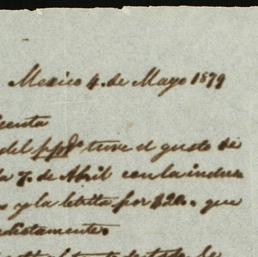 Mexico 4. de Mayo 1879
del pp.º tuve el gusto de
la 7. de Abril con la inclu
la letrita por $20. que
diatamente.